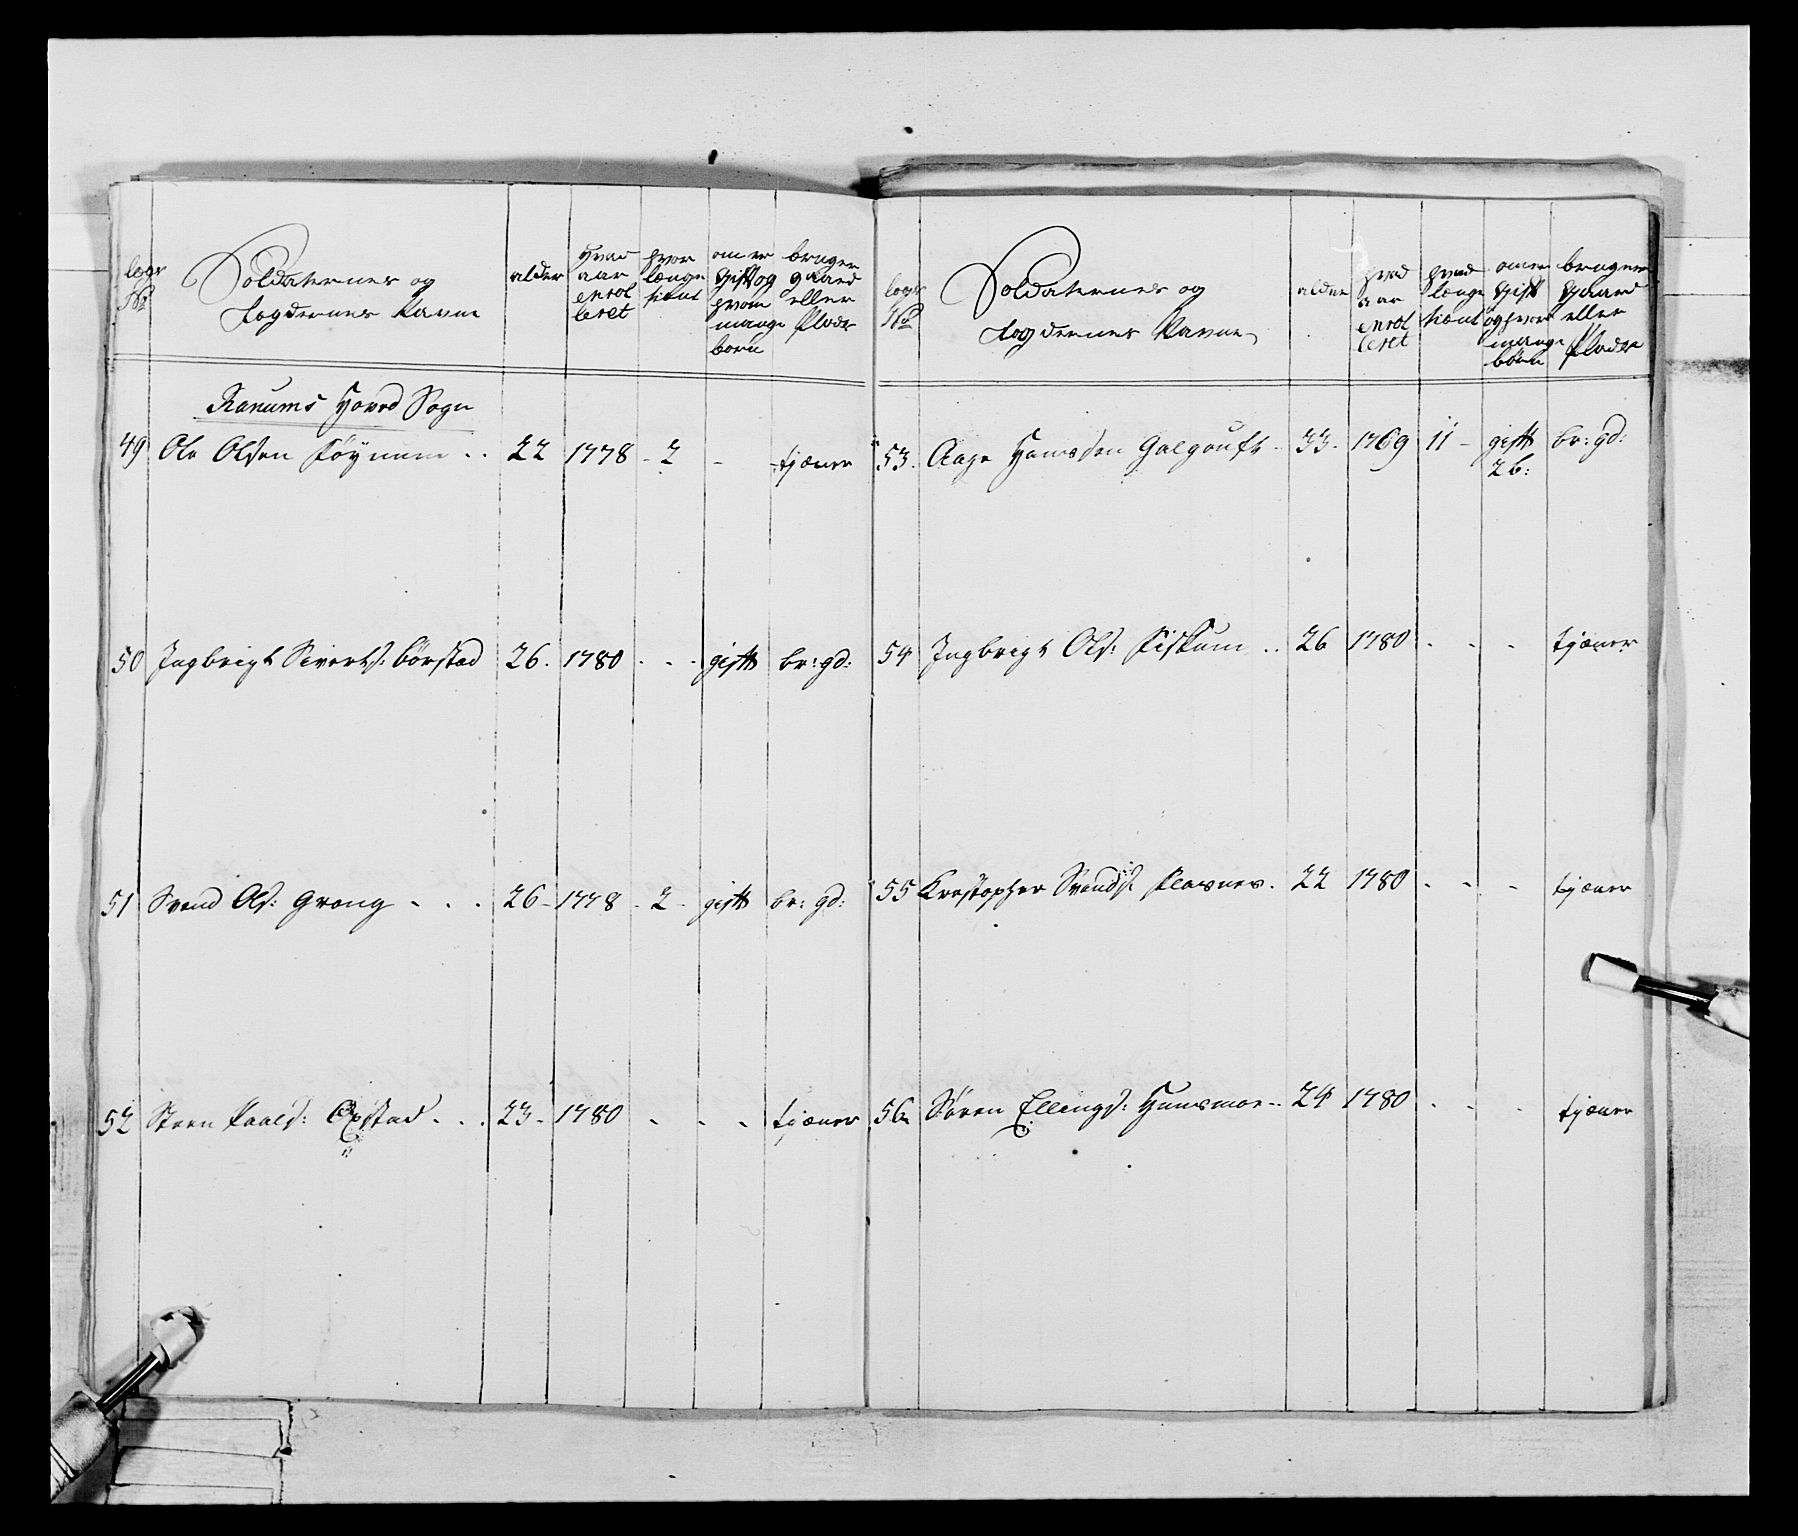 lægs
No
Soldaternes og
Lægdernes Navne
alder
Hvad
aar
enrol
leret
hvor
længe
tient
om er
gift og
hvor
mange
børn
bruger
gaard
eller
Plads
Ranums Hoved Sogn
49 Ole Olsen Føynum .. 22 1778 - 2 - - tjæner
50 Ingbrigt Siverts: Børstad 26. 1780 - - - gift br: gd:
51 Svend Ols: Grong - - - 26 - 1778 - 2 - gift br: gd:
52 Steen Paals: Opstad - - - 23 - 1780 - - - tjæner
lægs
No
Soldaternes og
Lægdernes Navne
alder
hvad
aar
enrol
leret
hvad
længe
tient
om er
gift
og hvor
mange
børn
bruger
gaard
eller
Plads
53. Aage Hansen Galgouft - 33 - 1769 11 - gift br: gd:
2 b:
54 Ingbrigt Ols: Fiskum .. 26 1780 - - - tjæner
55 Krestopher Svends: Flasnes. 22 1780 - - - tjæner
56 Søren Ellings: Hunsmoe -- 24 1780 - - - tjæner